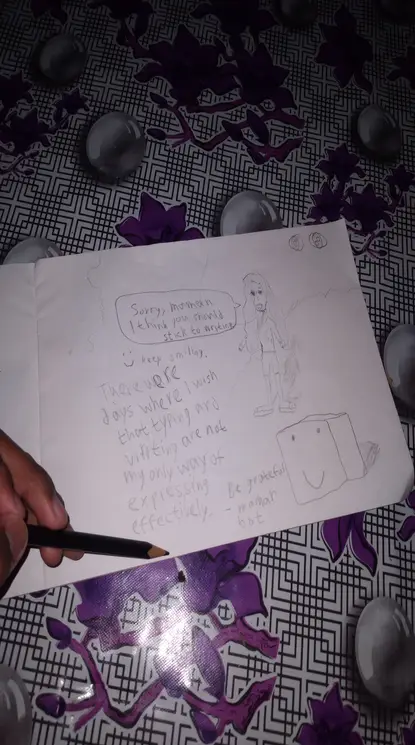 Sorry,
I think you should
stick to writing
keep smiling.
There were
days where I wish
that typing and
writing are not
my only way of
expressing
effectively.
Be grateful